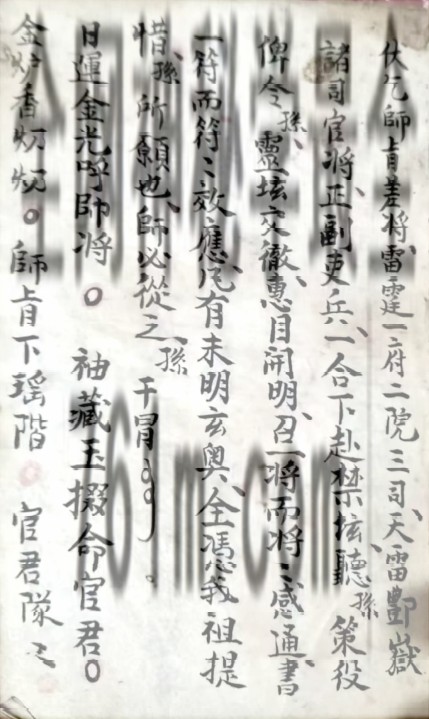 伏乞師旨差將雷霆一府二院三司天雷酆嶽
諸司官將正副吏兵一合下赴禁垓聽孫策役
俾令孫靈垓交徹惠目開明召一將而將〻感通書
一符而符〻效應凡有未明玄奧全憑我祖提
惜孫所願也師必從之孫干冒
日運金光呼師將。袖藏玉掇命官君。
金炉香。師旨下瑶階 官君隊〻